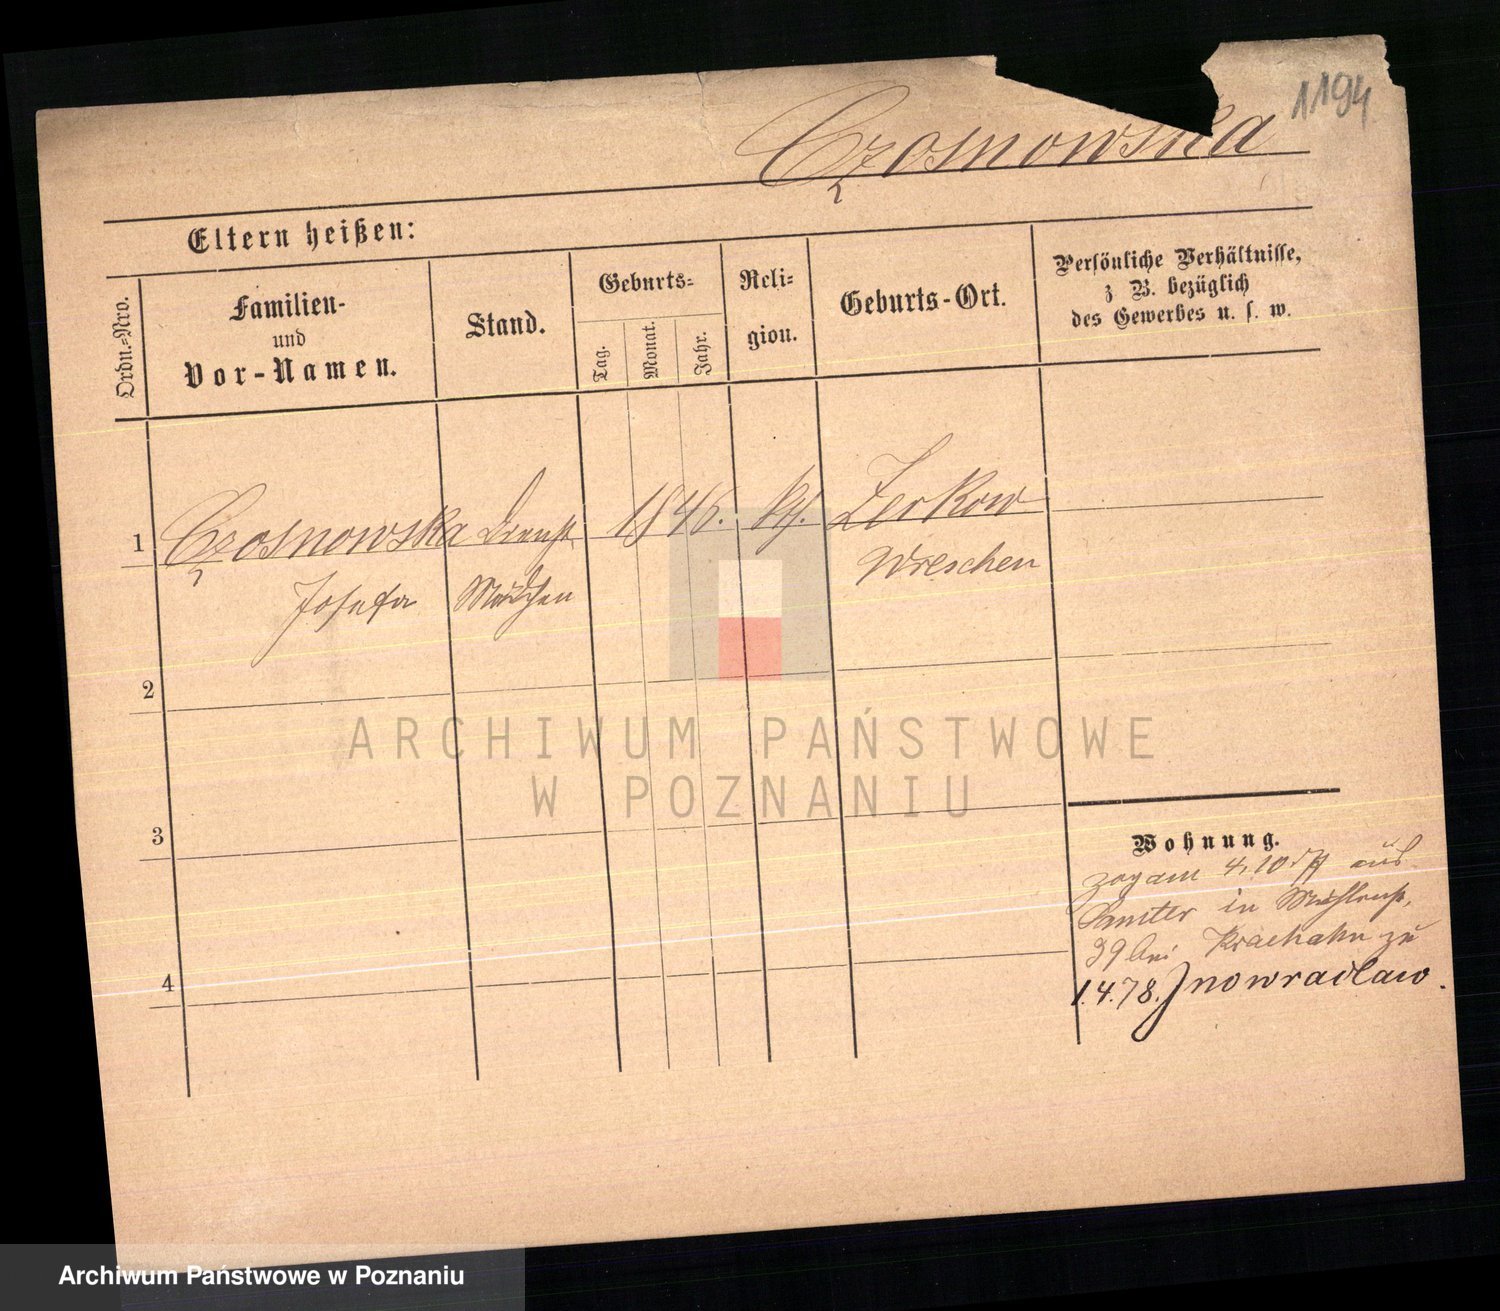 1194
Czosnowska
Eltern heißen:
Ordn.=Nro.
Familien-
und
Vor-Namen.
Stand.
Geburts=
Tag.
Monat.
Jahr.
Reli=
gion.
Geburts-Ort.
Persönliche Verhältnisse,
z B. bezüglich
des Gewerbes u. s. w.
1 Czosnowska Dienst 1846. kth. Zerkow
Josefa Mädchen Wreschen
2
3
4
ARCHIWUM PAŃSTWOWE
W POZNANIU
Wohnung.
zog am 4.10.77 aus
Samter in Mühlenst.
39 bei Krachahn zu
1.4.78. Jnowraclaw.
Archiwum Państwowe w Poznaniu